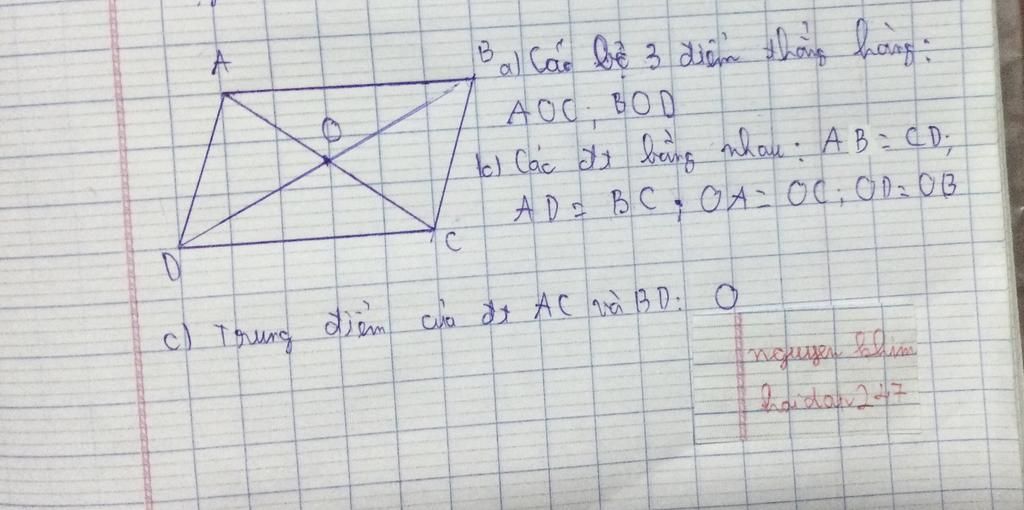 A
B
a) Các bộ 3 điểm thẳng hàng:
AOC; BOD
O
b) Các đt bằng nhau: AB = CD;
AD = BC; OA = OC; OD = OB
D
C
c) Trung điểm của đt AC và BD: O
nguyen khim
hoidap247